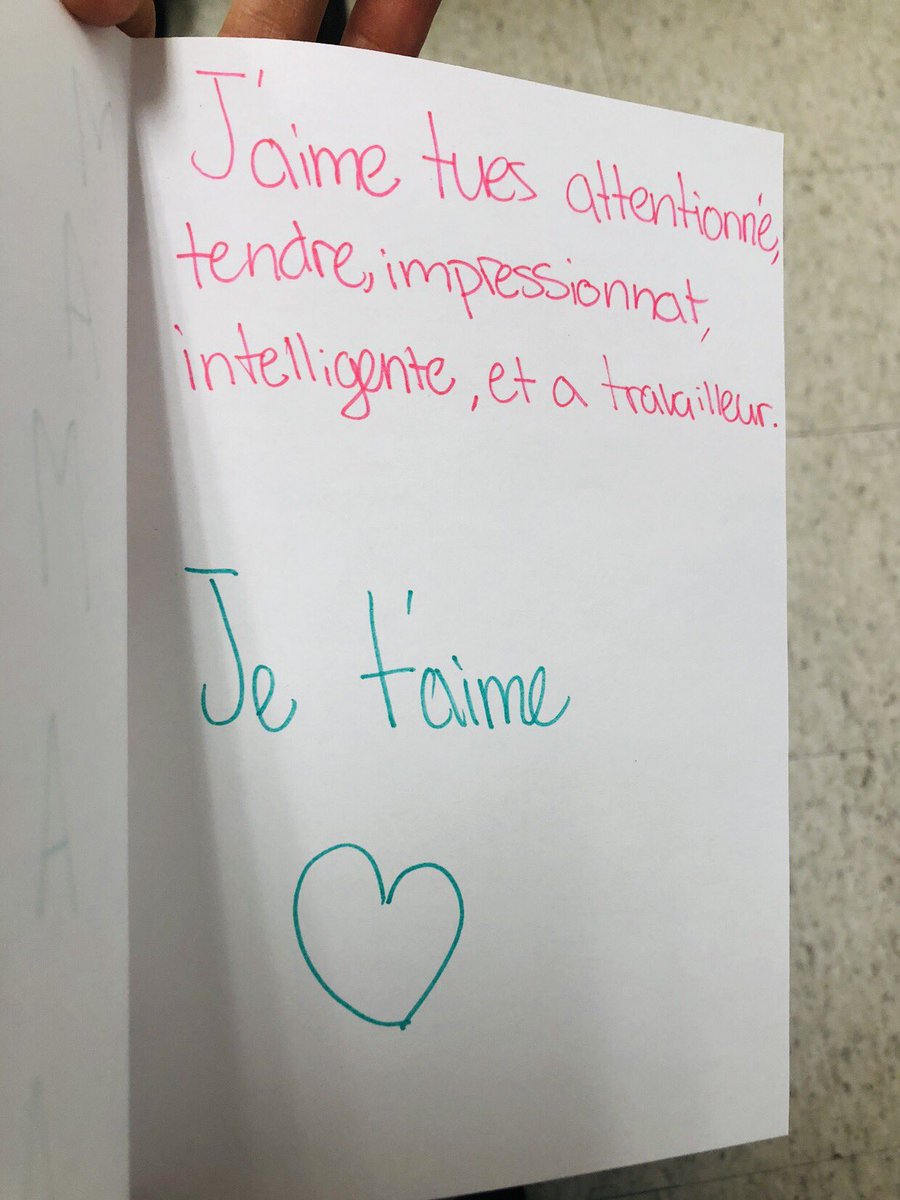 J'aime tues attentionné,
tendre, impressionnat,
intelligente, et a travailleur.
Je t'aime